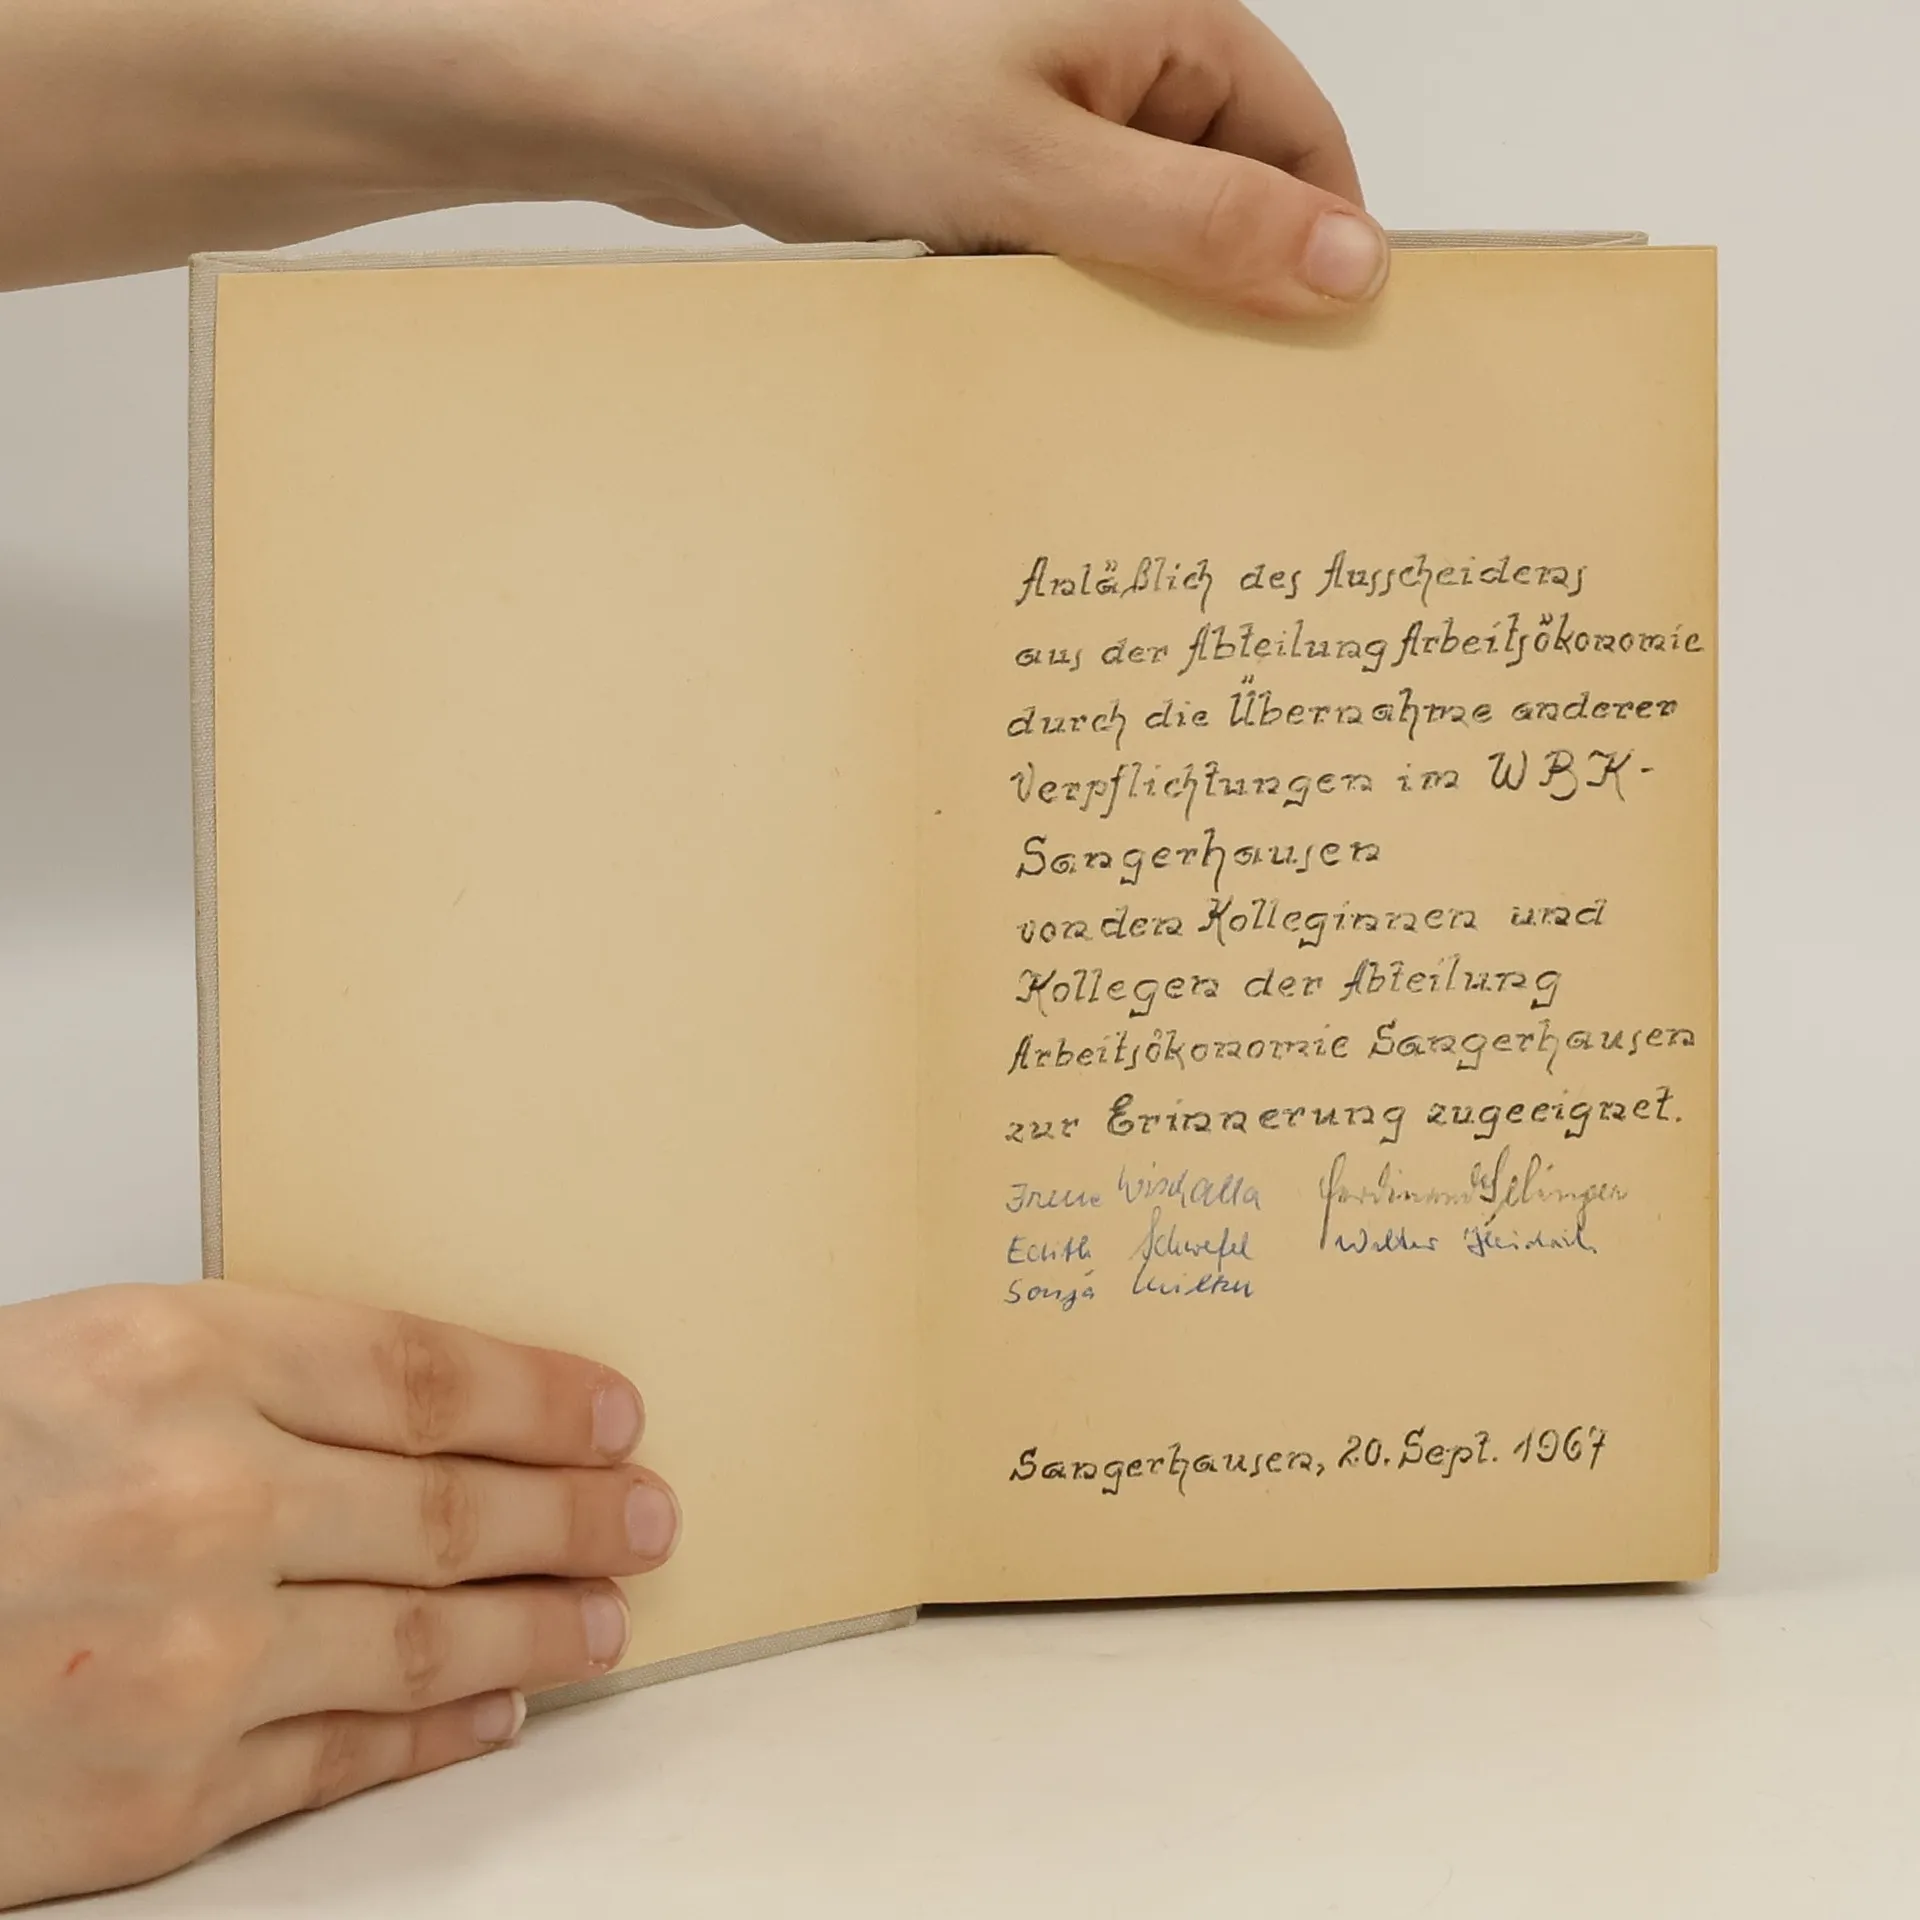 Anläßlich des Ausscheidens
aus der Abteilung Arbeitsökonomie
durch die Übernahme anderer
Verpflichtungen im WBK-
Sangerhausen
von den Kolleginnen und
Kollegen der Abteilung
Arbeitsökonomie Sangerhausen
zur Erinnerung zugeeignet.
Irene Ferdinand
Edith Schwefel Walter
Sonja
Sangerhausen, 20. Sept. 1967